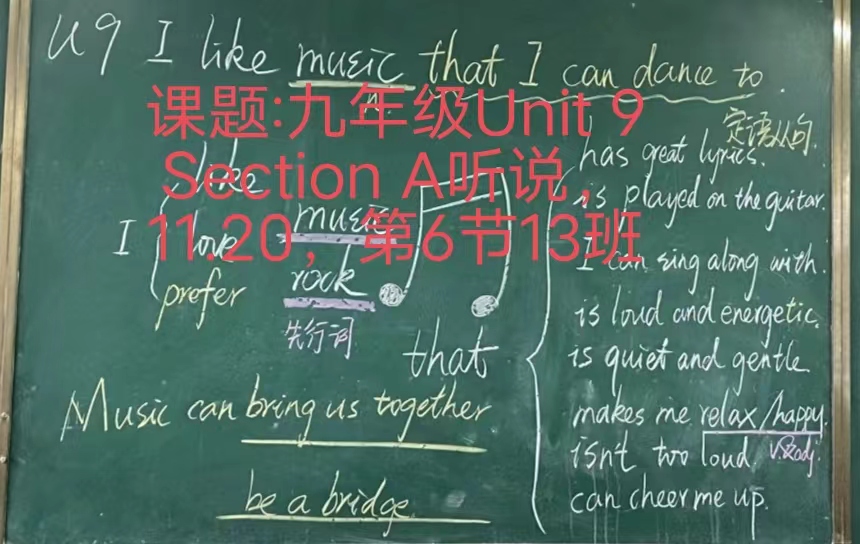 U9 I like music that I can dance to.
n.
定语从句
课题:九年级Unit 9
Section A听说,
11.20，第6节13班
I
like
love
prefer
music
rock
先行词
that
has great lyrics.
is played on the guitar.
I can sing along with.
is loud and energetic.
is quiet and gentle
makes me relax/happy.
v.或adj.
isn't too loud
can cheer me up.
Music can bring us together
be a bridge